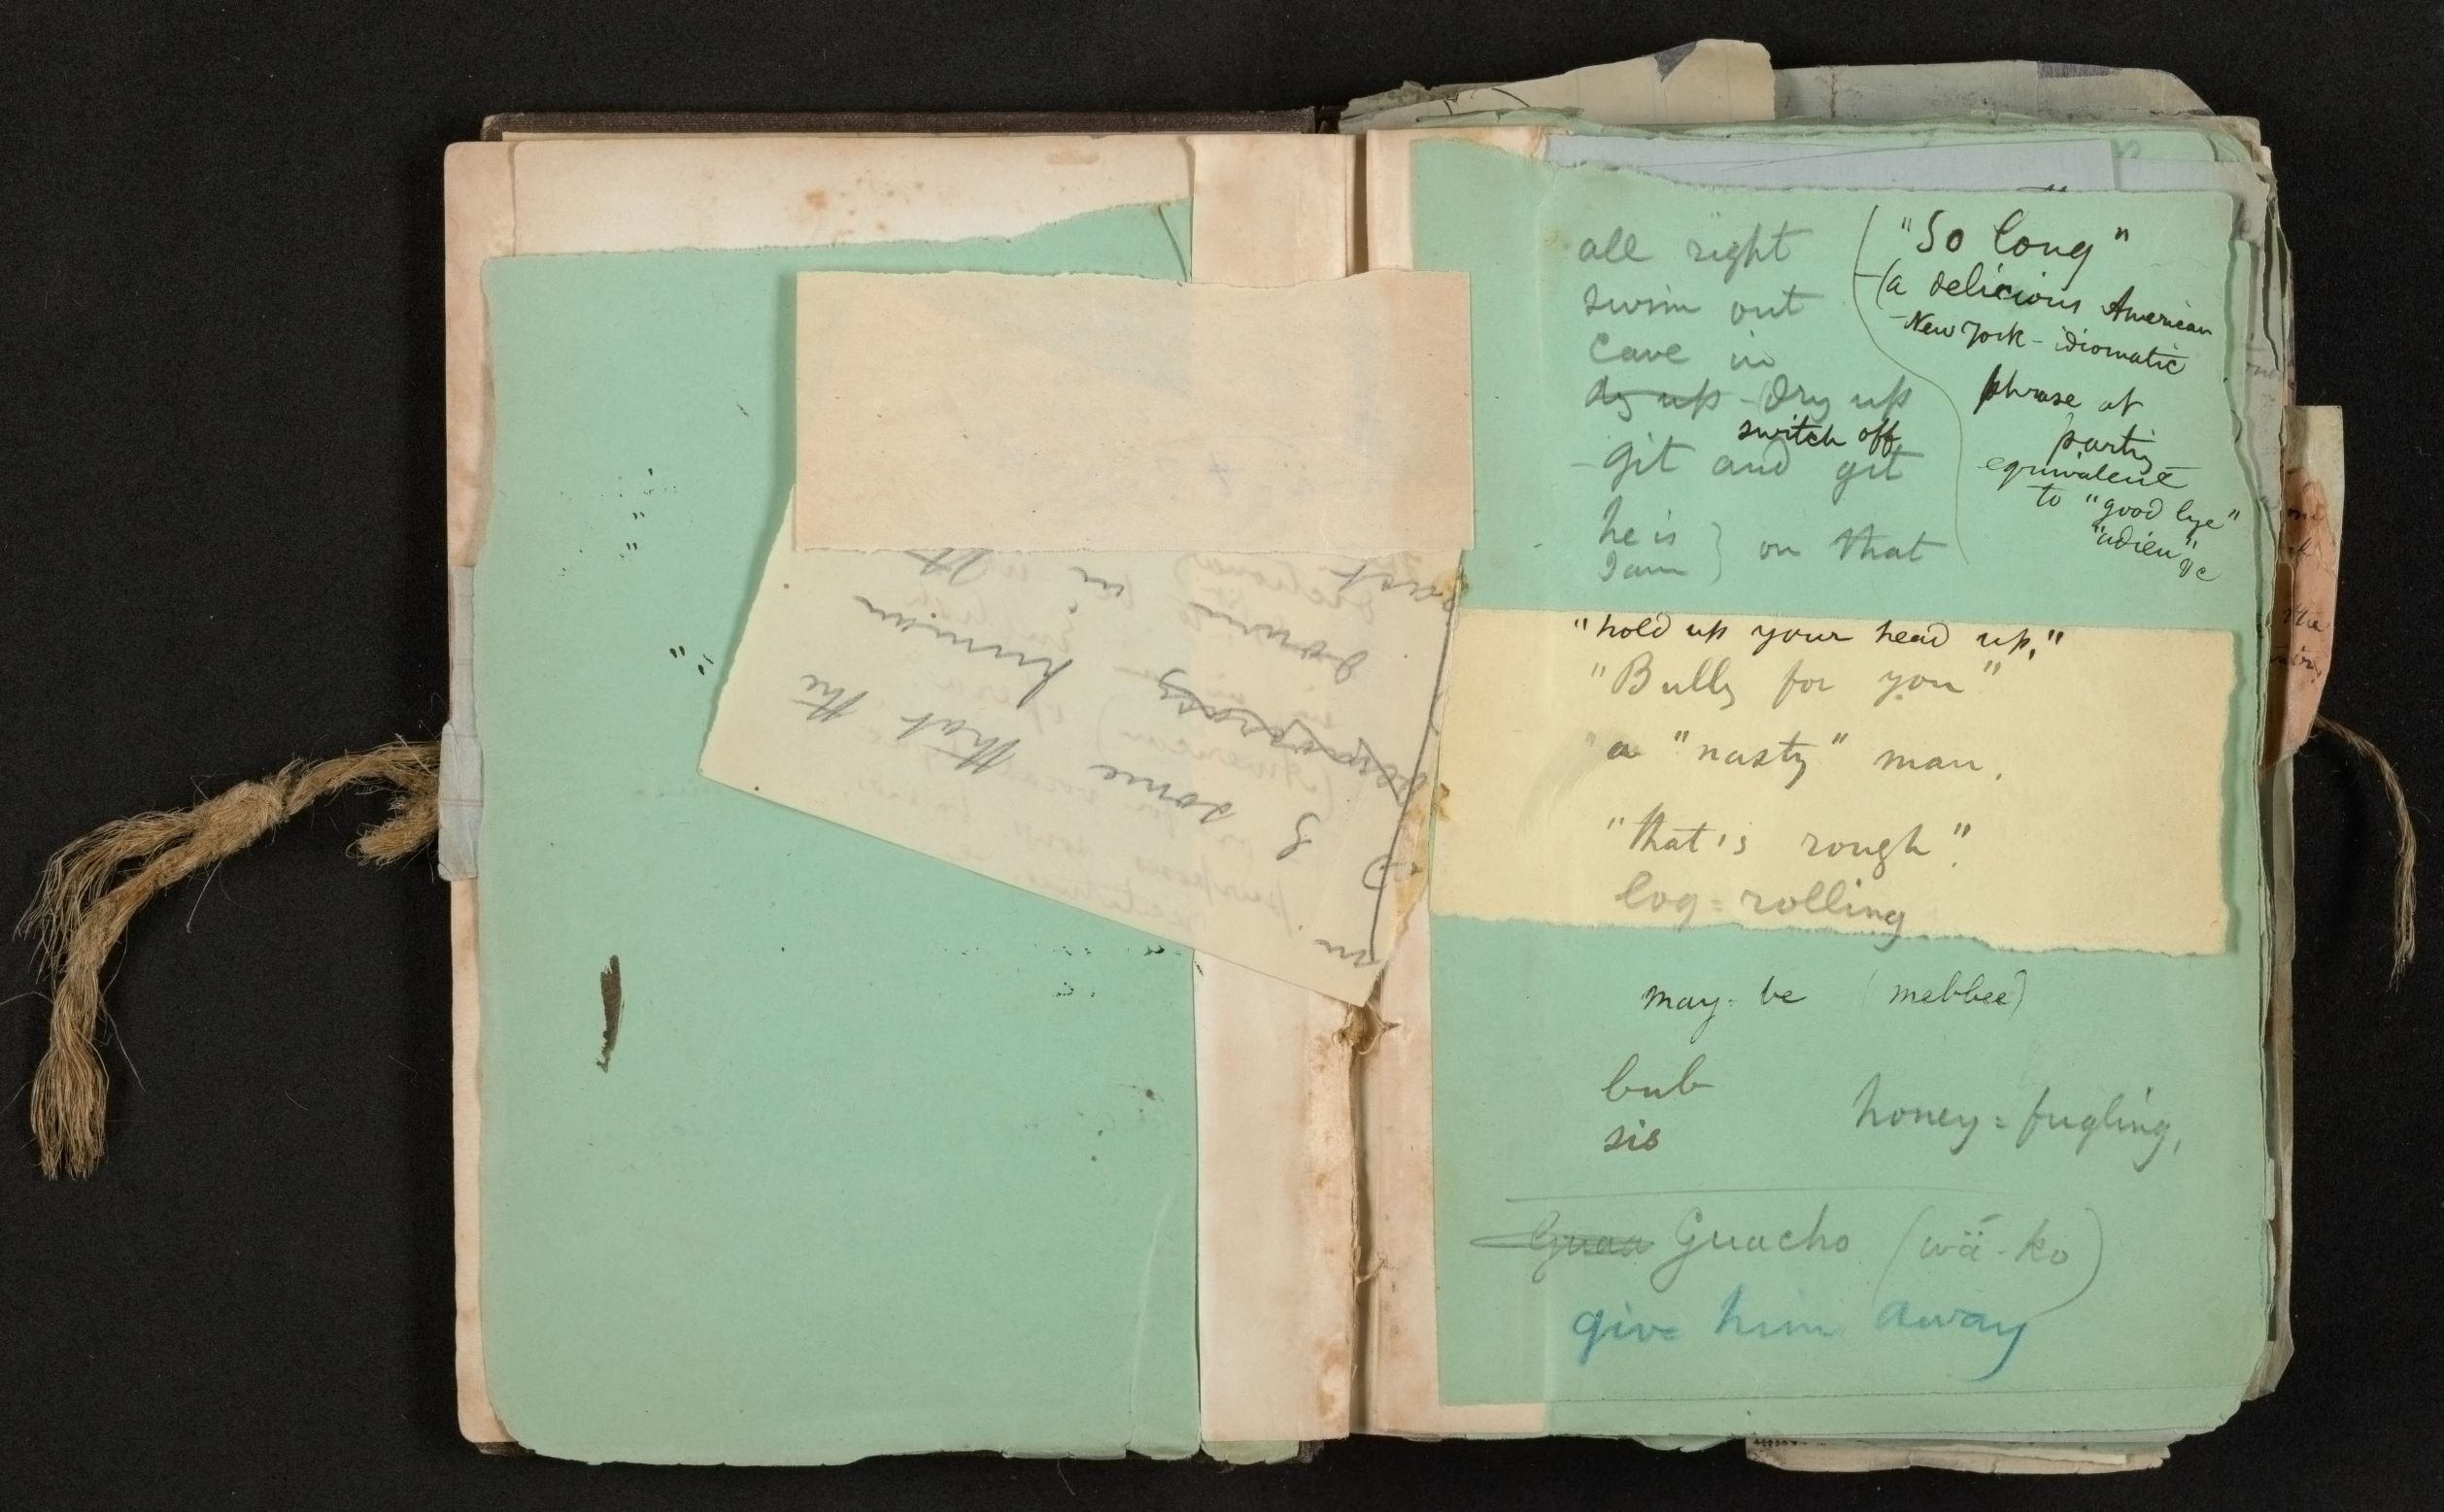 some that the
human
down in it
all right
swim out
cave in
dry up - dry up
switch off
- git and git
he is } on that
I am
"So long"
(a delicious American
- New York - idiomatic
phrase at
parting
equivalent
to "good bye"
"adieu" &c
"hold up your head up,"
"Bully for you"
a "nasty" man.
"that's rough".
log-rolling
may-be (mebbee)
bub
sis
honey-fugling,
Guaa Guacho (wä-ko)
give him away